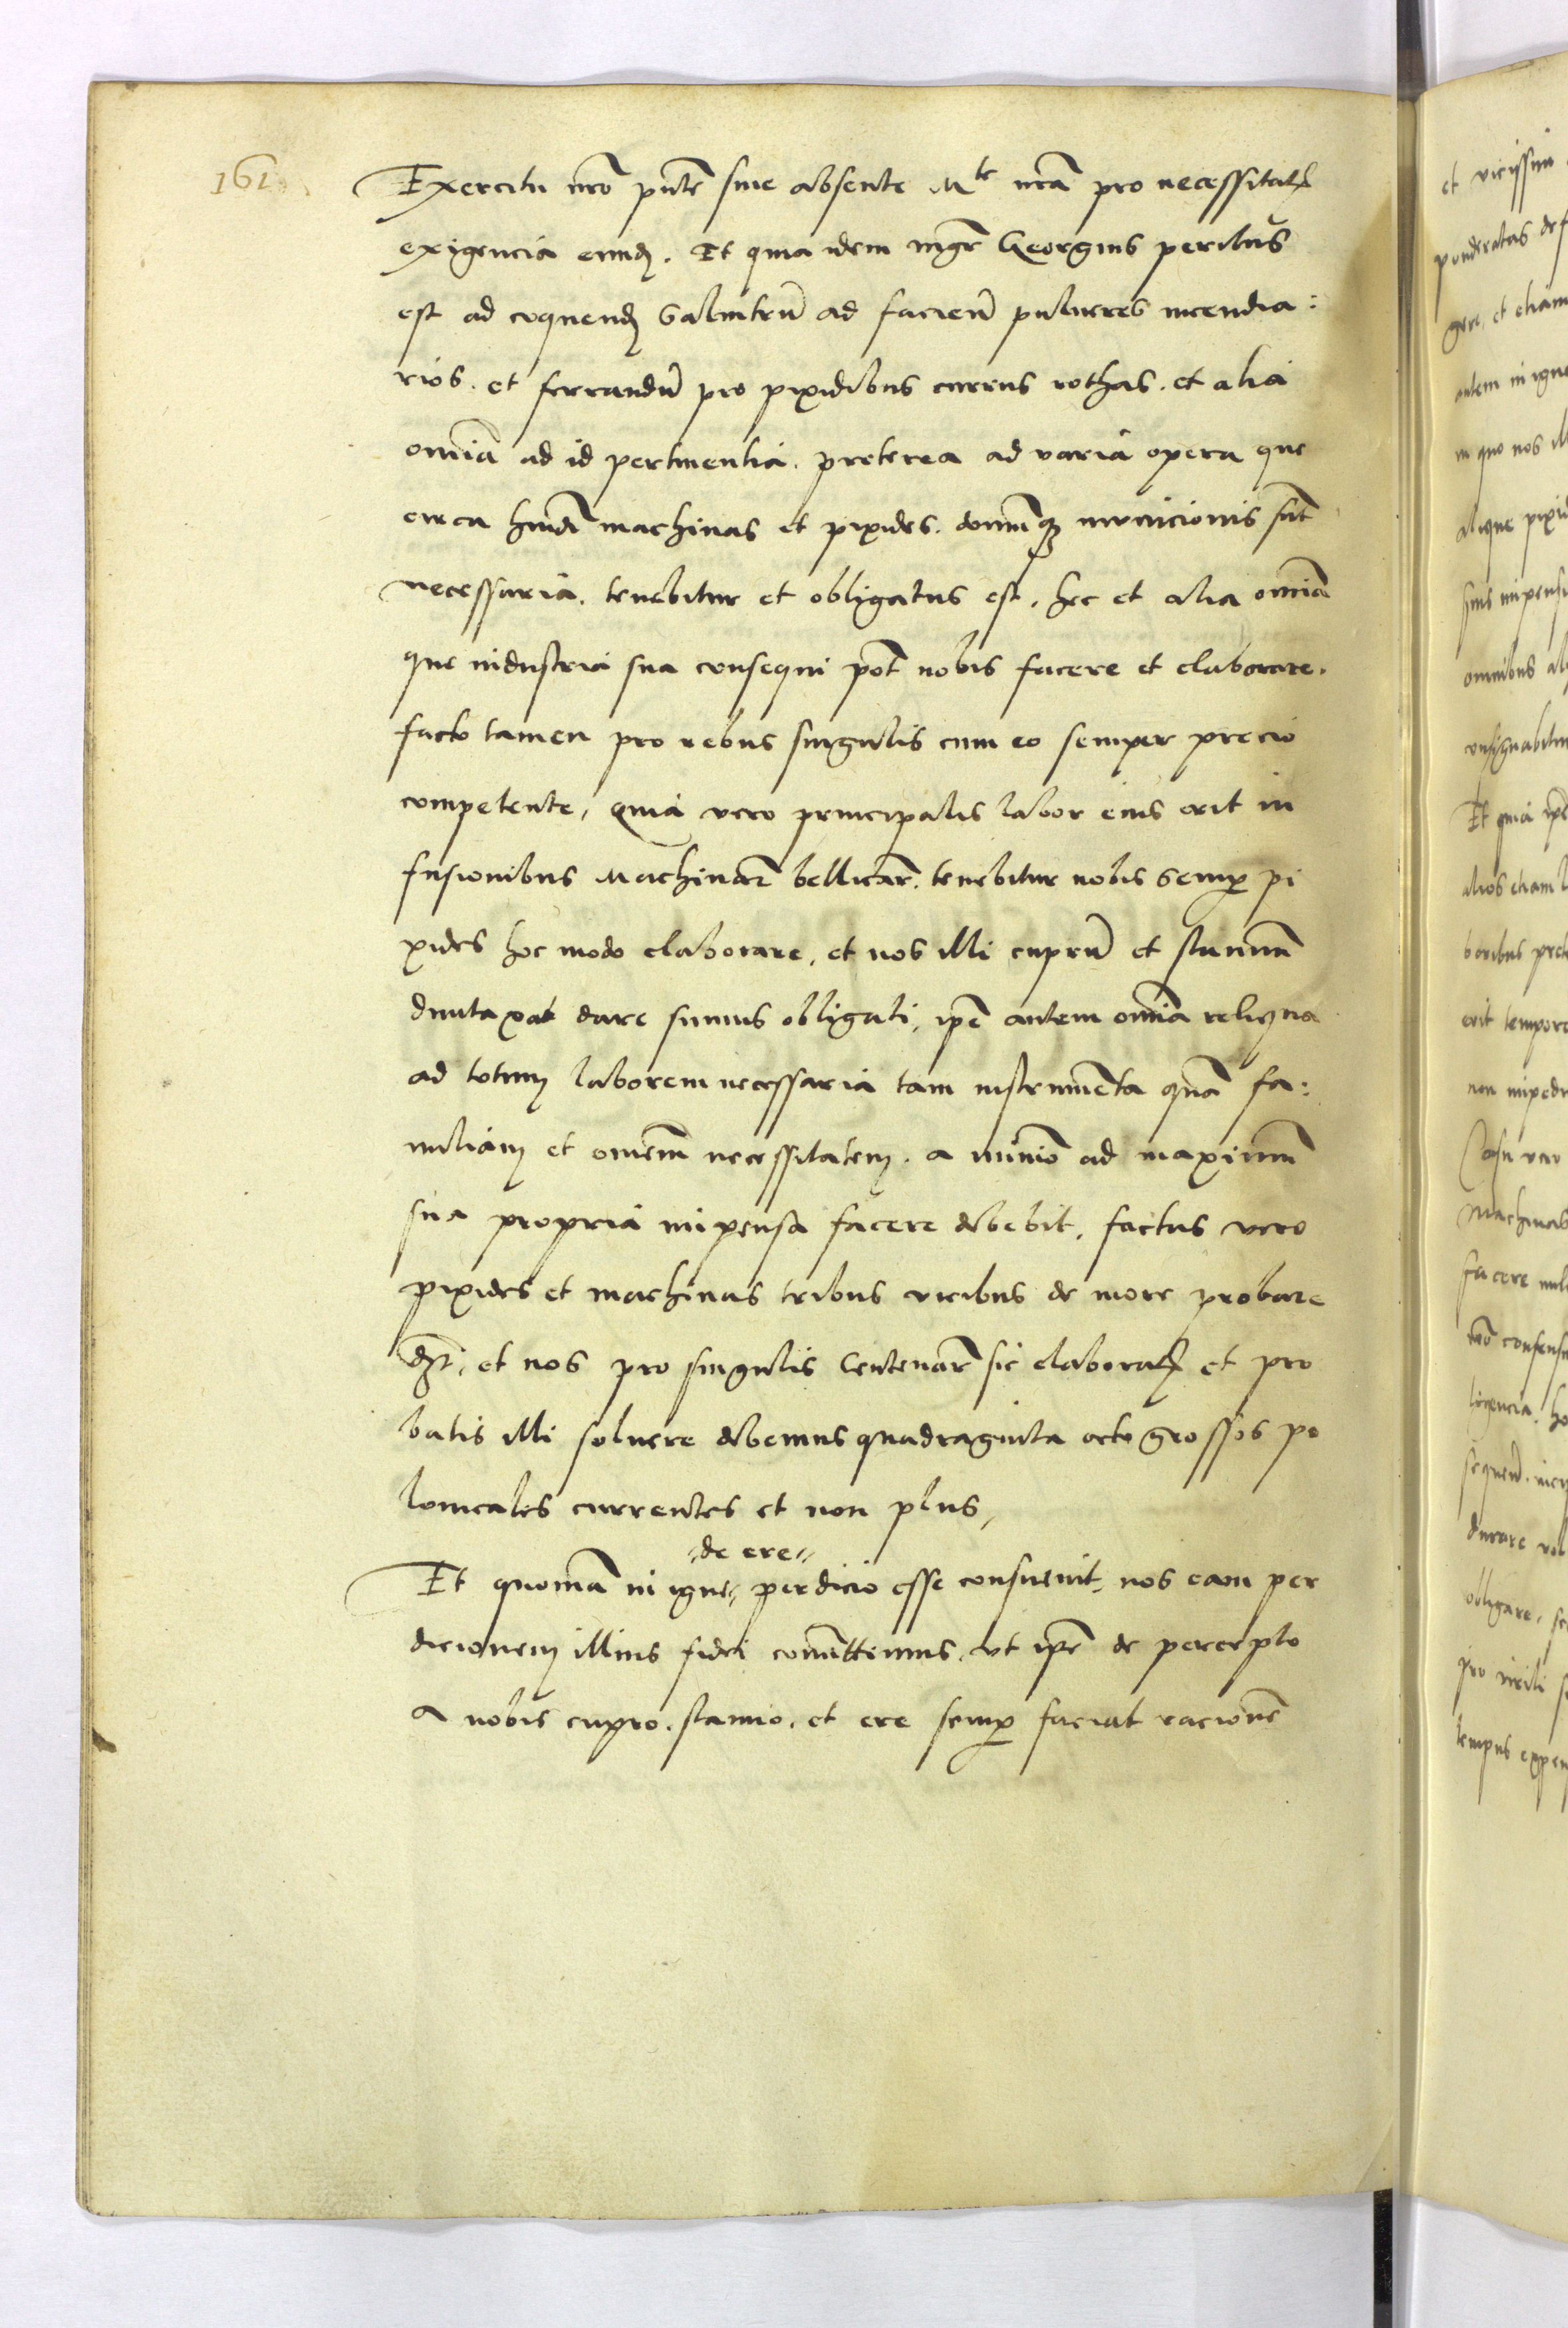 161
Exercitu nro pnte siue absente Mte nra pro necessitat
exigencia eund. Et quia idem mgr Georgius peritus
est ad coquend Salnitru ad faciend pulueres incendia:
rios. et ferrandu pro pixidibus currus rothas. et alia
omia ad id pertinentia. preterea ad varia opera que
circa hmoi machinas et pixides. domusq municionis sut
necessaria. tenebitur et obligatus est. hec et alia omia
que industria sua consequi pot nobis facere et elaborare.
facto tamen pro rebus singulis cum eo semper precio
competente, quia vero principalis labor eius erit in
fusionibus Machinar bellicar. tenebitur nobis semp pi
xides hoc modo elaborare, et nos illi cupru et stannu
duntaxat dare sumus obligati, ipe autem omia reliqua
ad totum laborem necessaria tam instrumenta qua fa:
miliam et omem necessitatem. a minio ad maximu
sua propria impensa facere debebit. factas vero
pixides et machinas tribus vicibus de more probare
et nos pro singulis Centenar sic elaborat et pro
batis illi soluere debemus quadraginta octo grossos po
lonicales currentes et non plus,
de ere
Et quoniam in igne perdicio esse consueuit, nos eam per
dicionem illius fidei comittimus. vt ipe de percepto
a nobis cupro. stanno. et ere semp faciat racione
et vicissim
ponderatas
gere, et etiam
autem in igne
in quo nos
alique
suis impens
omnibus
consignabitur
Et quia ipe
alios etiam
boribus
erit tempore
non
Casu vero
Machinas
facere
consensu
sequend.
durare
obligare,
pro virili
tempus